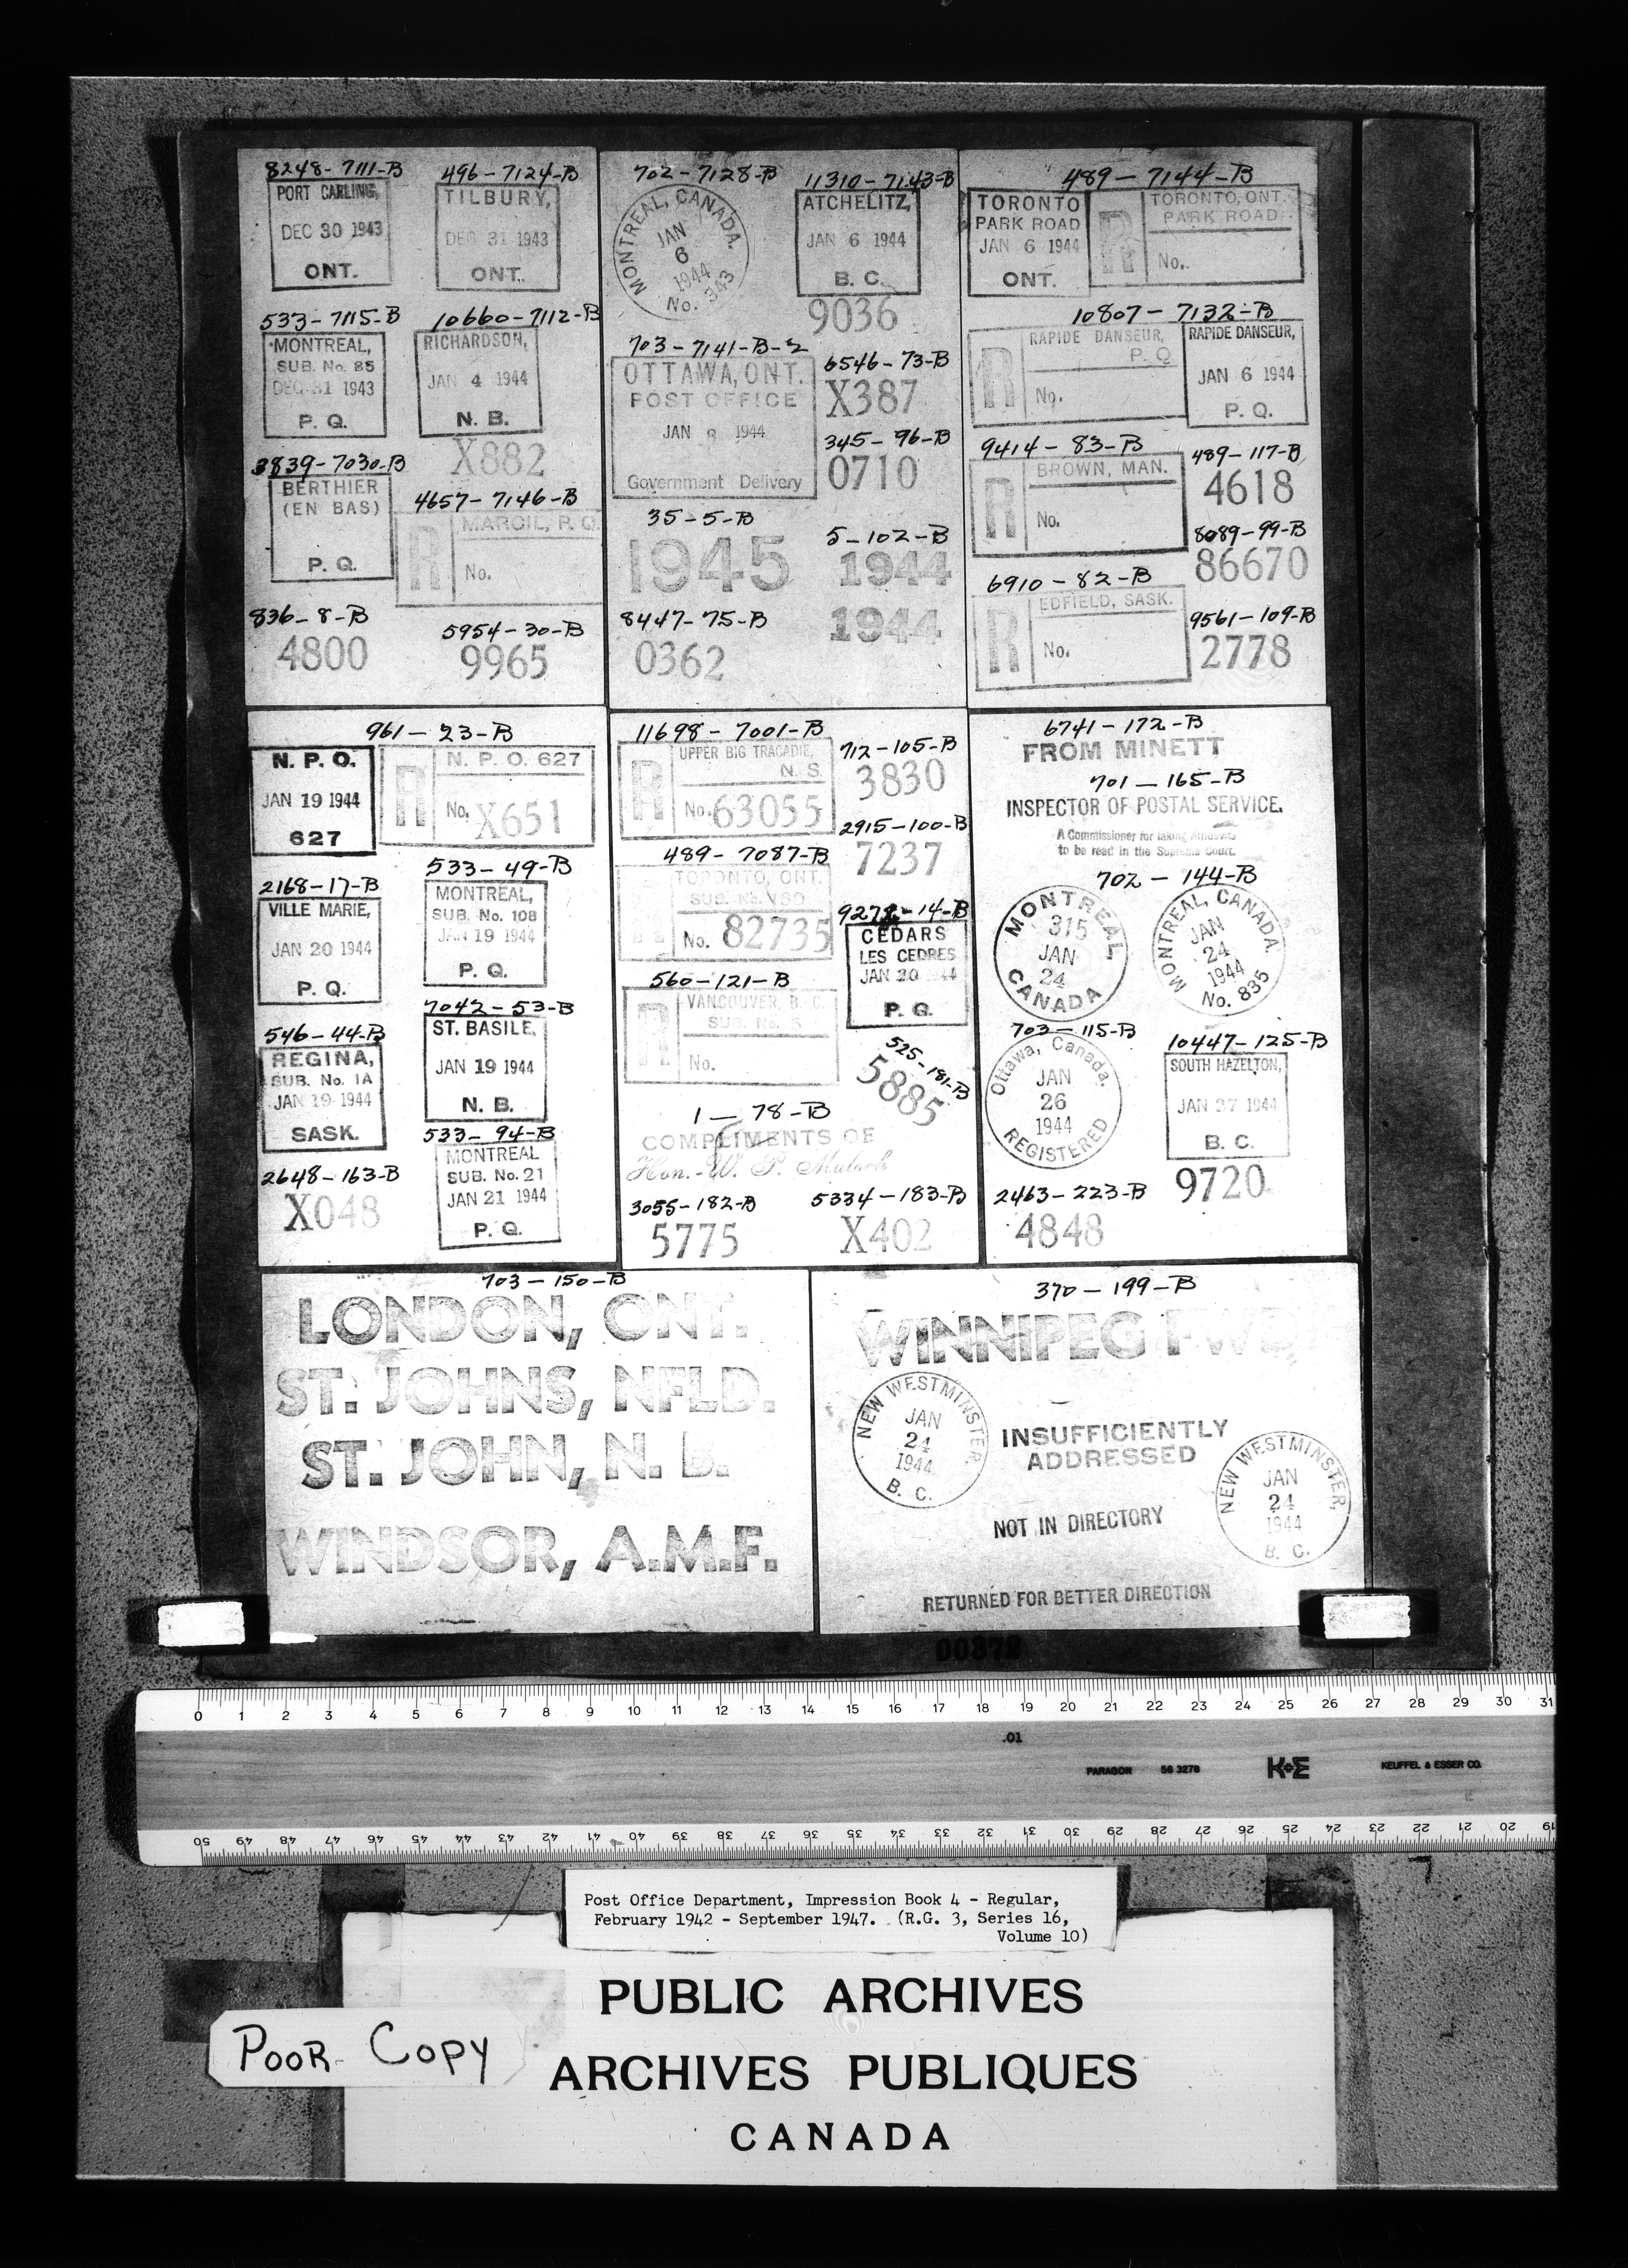 8248-7111-B
PORT CARLING,
DEC 30 1943
ONT.
496-7124-B
TILBURY,
DEC 31 1943
ONT.
533-7115-B
MONTREAL,
SUB. No. 85
DEC 31 1943
P. Q.
10660-7112-B
RICHARDSON,
JAN 4 1944
N. B.
X882
3839-7030-B
BERTHIER
(EN BAS)
P. Q.
4657-7146-B
R
MARCIL, P. Q.
No.
836-8-B
4800
5954-30-B
9965
702-7128-B
MONTREAL, CANADA.
JAN
6
1944
No. 343
11310-7143-B
ATCHELITZ,
JAN 6 1944
B. C.
9036
703-7141-B-2
OTTAWA, ONT.
POST OFFICE
JAN 8 1944
Government Delivery
6546-73-B
X387
345-96-B
0710
35-5-B
1945
5-102-B
1944
1944
8447-75-B
0362
489-7144-B
TORONTO
PARK ROAD
JAN 6 1944
ONT.
R
TORONTO, ONT.
PARK ROAD
No.
10807-7132-B
R
RAPIDE DANSEUR,
P. Q.
No.
RAPIDE DANSEUR,
JAN 6 1944
P. Q.
9414-83-B
R
BROWN, MAN.
No.
489-117-B
4618
8089-99-B
86670
6910-82-B
R
EDFIELD, SASK.
No.
9561-109-B
2778
961-23-B
N. P. O.
JAN 19 1944
627
R
N. P. O. 627
No. X651
2168-17-B
VILLE MARIE,
JAN 20 1944
P. Q.
533-49-B
MONTREAL,
SUB. No. 108
JAN 19 1944
P. Q.
546-44-B
REGINA,
SUB. No. 1A
JAN 19 1944
SASK.
7042-53-B
ST. BASILE,
JAN 19 1944
N. B.
533-94-B
MONTREAL
SUB. No. 21
JAN 21 1944
P. Q.
2648-163-B
X048
11698-7001-B
R
UPPER BIG TRACADIE,
N. S.
No. 63055
712-105-B
3830
2915-100-B
7237
489-7087-B
TORONTO, ONT.
No. 82735
-14-B
CEDARS
LES CEDRES
JAN 20 44
P. Q.
560-121-B
R
VANCOUVER, B. C.
No.
525-181-B
5885
1-78-B
COMPLIMENTS OF
Hon. W. P. Mulock
3055-182-B
5775
5334-183-B
X402
6741-172-B
FROM MINETT
701-165-B
INSPECTOR OF POSTAL SERVICE.
A Commissioner for taking Affidavits
to be read in the Supreme Court.
702-144-B
MONTREAL
315
JAN
24
CANADA
MONTREAL, CANADA.
JAN
24
1944
No. 835
703-115-B
Ottawa, Canada.
JAN
26
1944
REGISTERED
10447-125-B
SOUTH HAZELTON,
JAN 27 1944
B. C.
9720
2463-223-B
4848
703-150-B
LONDON, ONT.
ST. JOHNS, NFLD.
ST. JOHN, N. B.
WINDSOR, A.M.F.
370-199-B
WINNIPEG FWD
NEW WESTMINSTER,
JAN
24
1944
B. C.
INSUFFICIENTLY
ADDRESSED
NEW WESTMINSTER,
JAN
24
1944
B. C.
NOT IN DIRECTORY
RETURNED FOR BETTER DIRECTION
00372
0 1 2 3 4 5 6 7 8 9 10 11 12 13 14 15 16 17 18 19 20 21 22 23 24 25 26 27 28 29 30 31
.01
PARAGON 56 3278 K+E KEUFFEL & ESSER CO.
50 49 48 47 46 45 44 43 42 41 40 39 38 37 36 35 34 33 32 31 30 29 28 27 26 25 24 23 22 21 20 19
Post Office Department, Impression Book 4 - Regular,
February 1942 - September 1947. (R.G. 3, Series 16,
Volume 10)
PUBLIC ARCHIVES
POOR COPY
ARCHIVES PUBLIQUES
CANADA